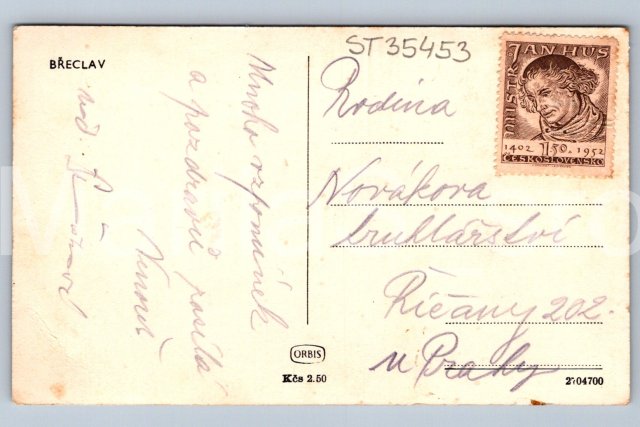 BŘECLAV
ST 35453
MISTR JAN HUS
1402 1.50 1952
ČESKOSLOVENSKO
Mnoho vzpomínek
a pozdravů posílá
Rodina
Novákova
truhlářství
Říčany 202.
u Prahy
ORBIS
Kčs 2.50
2704700